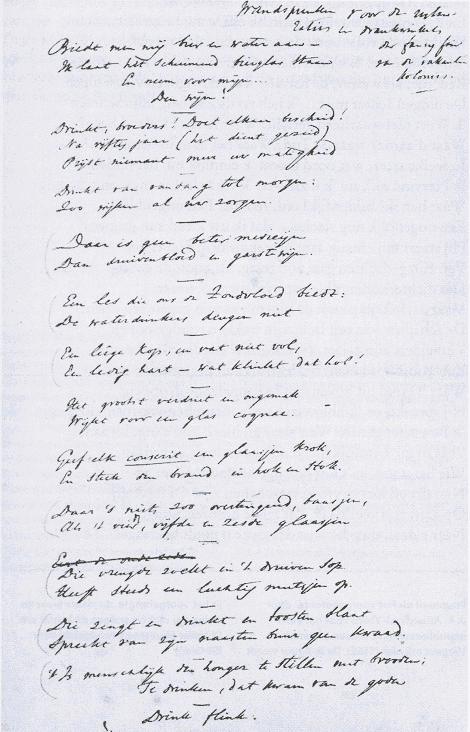 Wandspreuken voor de
en drankwinkels
Biedt men mij bier en water aan –
Ik laat het schuimend bierglas staan
En neem voor mijn...
Den wijn.
Drinkt, broeders! Doet elkaar bescheid!
Na vijftig jaar (het dient gezeid)
Prijst niemant meer uw matigheid
Drinkt van vandaag tot morgen:
Zoo wijken al uw zorgen.
Daar is geen beter medicijn
Dan druivenbloed en garstewijn.
Een les die ons de Zondvloed biedt:
De waterdrinkers deugen niet
Een leêge kop, en vat niet vol,
En ledig hart – wat klinkt dat hol!
Het grootst verdriet en ongemak
Wijkt voor een glas cognac.
Geef elk conscrit een glaasjen
En steek den brand in hok en
Daar 's niets zoo overtuigend, baasjen,
Als 't vierd', vijfde en zesde glaasjen
Die vreugde zoekt in 't druivensop
Heeft steeds een luchtig mutsjen op.
Die zingt en drinkt en toosten slaat
Spreekt van zijn naasten buur geen kwaad.
't Is menschlijk den honger te stillen met brooden;
Te drinken, dat kwam van de goden
Drink flink.